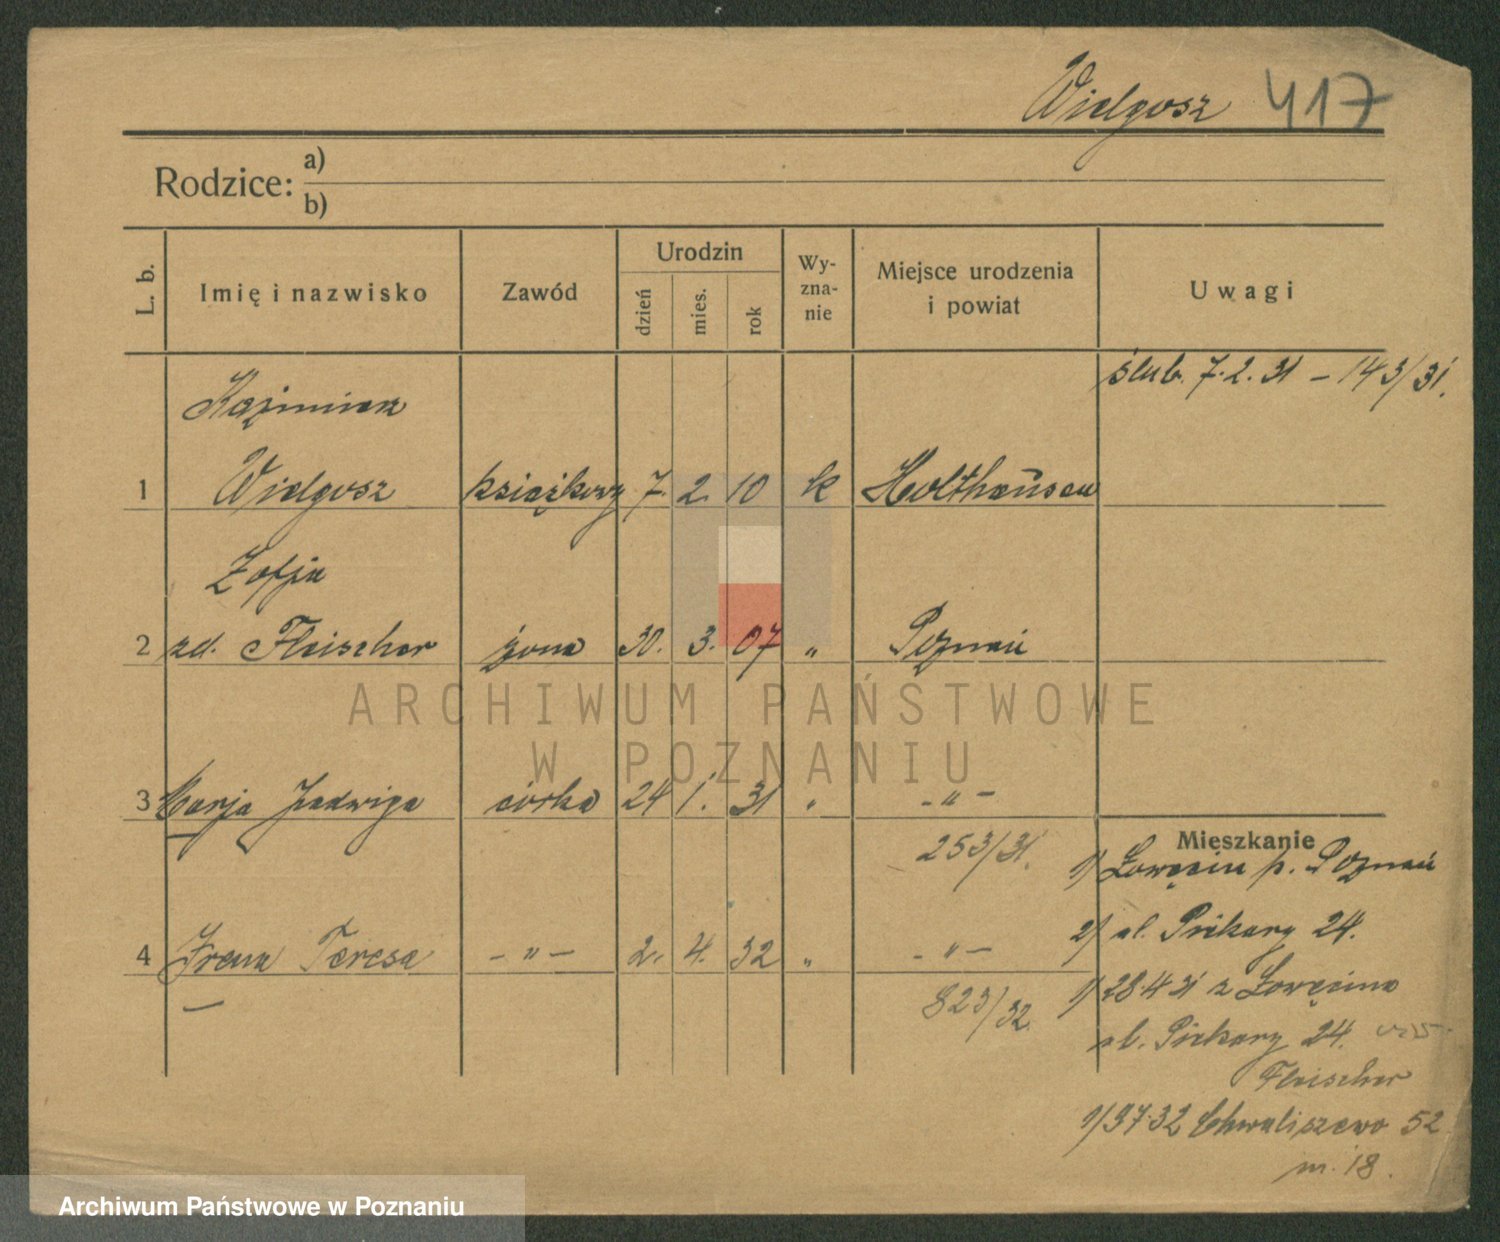 Wielgosz 417
Rodzice: a)
b)
L. b. Imię i nazwisko Zawód Urodzin dzień mies. rok Wy-zna-nie Miejsce urodzenia i powiat Uwagi
ślub. 7.2.31 – 143/31.
Kazimierz
1 Wielgosz książkowy 7. 2. 10 k Holthausen
Zofja
2 zd. Fleischer żona 30. 3. 07 " Poznań
ARCHIWUM PAŃSTWOWE
W POZNANIU
3 Marja Jadwiga córka 24 1. 31 " - " -
253/31.
Mieszkanie
1) Ławęcin p. Poznań
2) ul. Piekary 24.
4 Irena Teresa - " - 2. 4. 32 " - " -
823/32.
1) 28.4.31 z Ławęcina
ul. Piekary 24.
Fleischer
1) 9.7.32 Chwaliszewo 52
m. 18.
Archiwum Państwowe w Poznaniu